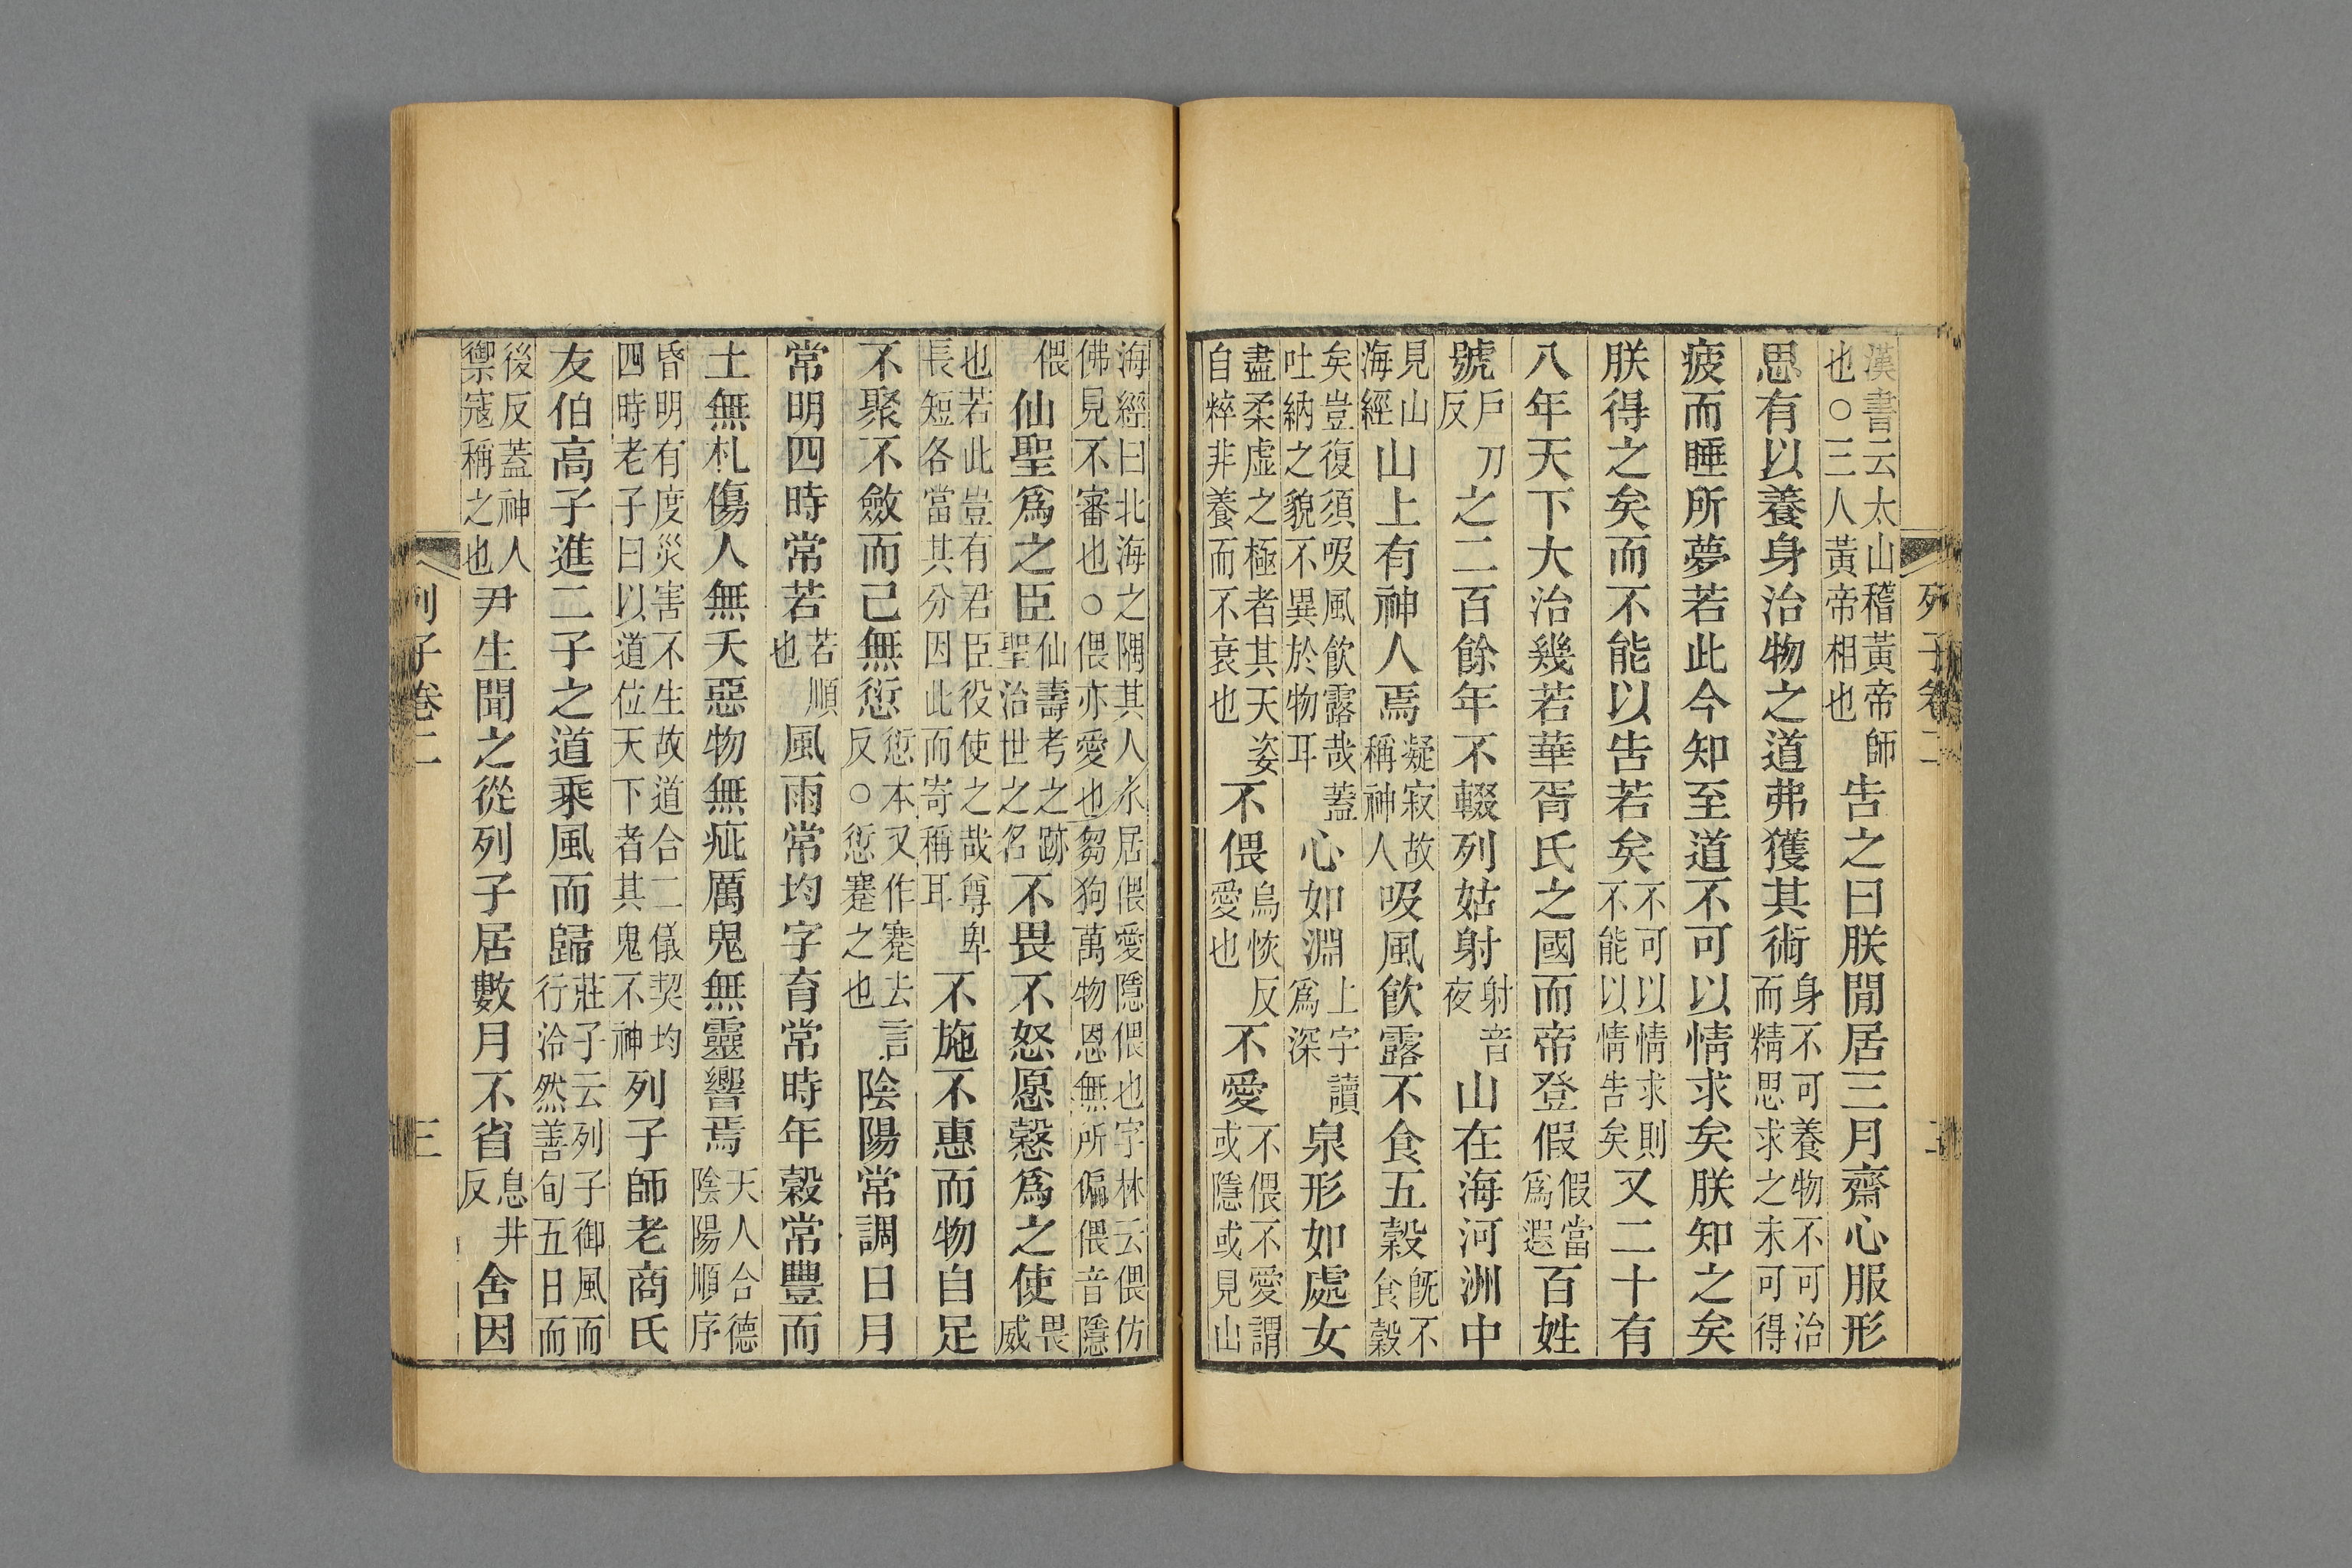 列子卷二
二
漢書云太山稽黃帝師
也○三人黃帝相也
告之曰朕閒居三月齋心服形
思有以養身治物之道弗獲其術
身不可養物不可治
而精思求之未可得
疲而睡所夢若此今知至道不可以情求矣朕知之矣
朕得之矣而不能以告若矣
不可以情求則
不能以情告矣
又二十有
八年天下大治幾若華胥氏之國而帝登假
假當
爲遐
百姓
號
戶刀
反
之二百餘年不輟列姑射
射音
夜
山在海河洲中
見山
海經
山上有神人焉
凝寂故
稱神人
吸風飲露不食五穀
旣不
食穀
矣豈復須吸風飲露哉蓋
吐納之貌不異於物耳
心如淵
上字讀
爲深
泉形如處女
盡柔虛之極者其天姿
自粹非養而不衰也
不偎
烏恢反
愛也
不愛
不偎不愛謂
或隱或見山
海經曰北海之隅其人水居偎愛隱偎也字林云偎仿
佛見不審也○偎亦愛也芻狗萬物恩無所偏偎音隱
偎
仙聖爲之臣
仙壽考之跡
聖治世之名
不畏不怒愿愨爲之使
畏
威
也若此豈有君臣役使之哉尊卑
長短各當其分因此而寄稱耳
不施不惠而物自足
不聚不斂而己無愆
愆本又作蹇去言
反○愆蹇之也
陰陽常調日月
常明四時常若
若順
也
風雨常均字育常時年穀常豐而
土無札傷人無夭惡物無疵厲鬼無靈響焉
天人合德
陰陽順序
昏明有度災害不生故道合二儀契均
四時老子曰以道位天下者其鬼不神
列子師老商氏
友伯高子進二子之道乘風而歸
莊子云列子御風而
行泠然善旬五日而
後反蓋神人
禦寇稱之也
尹生聞之從列子居數月不省
息井
反
舍因
列子卷二
三